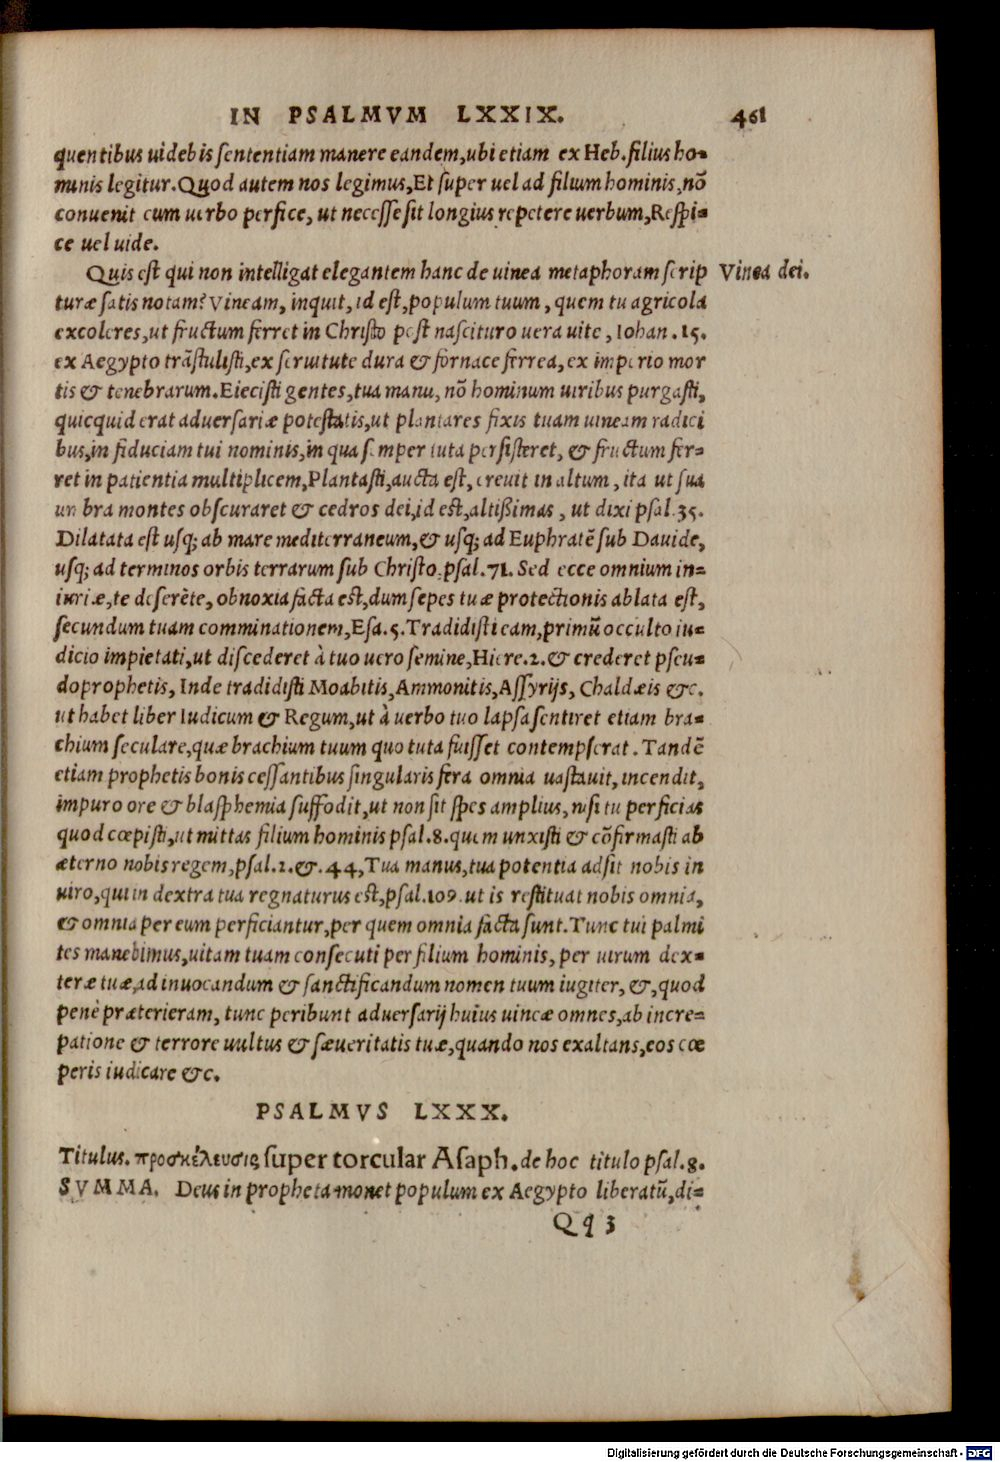 IN PSALMVM LXXIX. 461
quentibus uidebis sententiam manere eandem,ubi etiam ex Heb.filius ho-
minis legitur.Quod autem nos legimus,Et super uel ad filium hominis,nõ
conuenit cum uerbo perfice, ut necesse sit longius repetere uerbum,Respi-
ce uel uide.
Quis est qui non intelligat elegantem hanc de uinea metaphoram scrip Vinea dei.
turæ satis notam? Vineam, inquit, id est, populum tuum, quem tu agricola
excoleres,ut fructum ferret in Christo post nascituro uera uite, Iohan.15.
ex Aegypto trãstulisti,ex seruitute dura & fornace ferrea, ex imperio mor
tis & tenebrarum.Eiecisti gentes,tua manu, nõ hominum uiribus purgasti,
quicquid erat aduersariæ potestatis,ut plantares fixis tuam uineam radici
bus,in fiduciam tui nominis,in qua semper tuta persisteret, & fructum fer-
ret in patientia multiplicem,Plantasti,aucta est, creuit in altum, ita ut sua
umbra montes obscuraret & cedros dei,id est,altißimas, ut dixi psal.35.
Dilatata est usq; ab mare mediterraneum,& usq; ad Euphratẽ sub Dauide,
usq; ad terminos orbis terrarum sub Christo.psal.71. Sed ecce omnium in-
iuriæ,te deserẽte, obnoxia facta est,dum sepes tuæ protectionis ablata est,
secundum tuam comminationem,Esa.5.Tradidisti eam,primũ occulto iu-
dicio impietati,ut discederet à tuo uero semine,Hiere.2.& crederet pseu-
doprophetis, Inde tradidisti Moabitis,Ammonitis,Assyrijs, Chaldæis &c.
ut habet liber Iudicum & Regum,ut à uerbo tuo lapsa sentiret etiam bra-
chium seculare,quæ brachium tuum quo tuta fuisset contempserat. Tandẽ
etiam prophetis bonis cessantibus singularis fera omnia uastauit, incendit,
impuro ore & blasphemia suffodit,ut non sit spes amplius, nisi tu perficias
quod cœpisti,ut mittas filium hominis psal.8.quem unxisti & cõfirmasti ab
æterno nobis regem,psal.2.&.44,Tua manus,tua potentia adsit nobis in
uiro,qui in dextra tua regnaturus est,psal.109.ut is restituat nobis omnia,
& omnia per eum perficiantur,per quem omnia facta sunt.Tunc tui palmi
tes manebimus,uitam tuam consecuti per filium hominis, per uirum dex-
teræ tuæ,ad inuocandum & sanctificandum nomen tuum iugiter, &,quod
penè præterieram, tunc peribunt aduersarij huius uineæ omnes,ab incre-
patione & terrore uultus & sæueritatis tuæ,quando nos exaltans,eos cœ
peris iudicare &c.
PSALMVS LXXX.
Titulus. προσκέλευσις super torcular Asaph. de hoc titulo psal.8.
SVMMA. Deus in propheta monet populum ex Aegypto liberatũ,di-
Qq 3
Digitalisierung gefördert durch die Deutsche Forschungsgemeinschaft - DFG